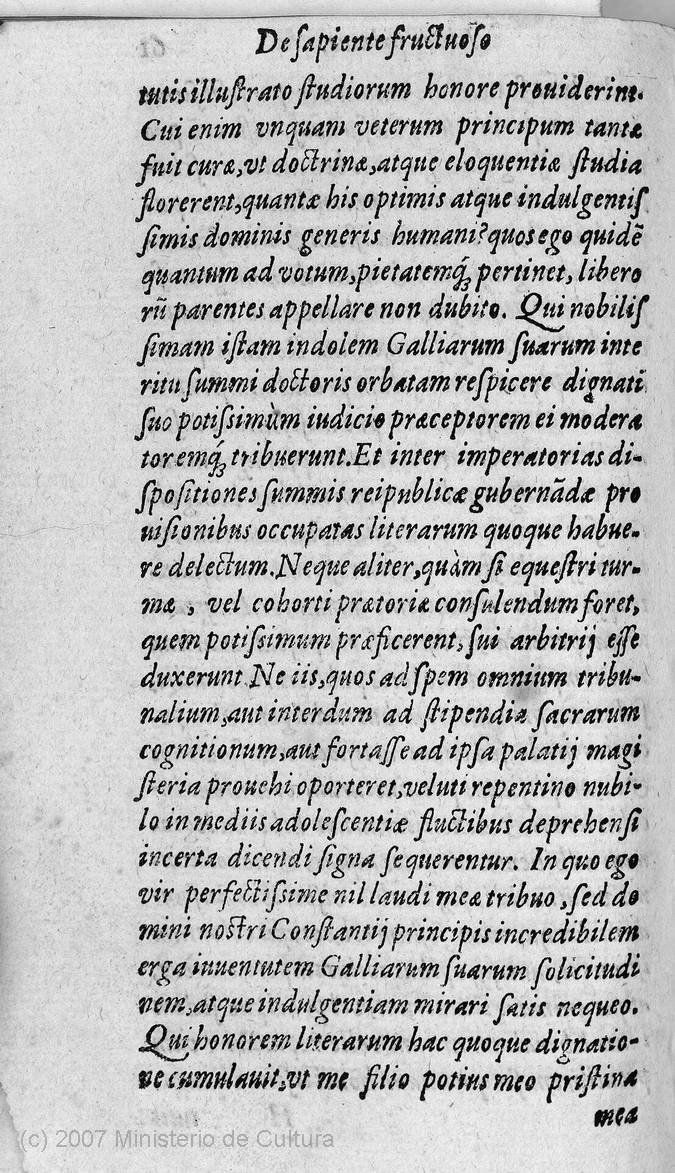 De sapiente fructuoso
tutis illuſtrato ſtudiorum honore prouiderint.
Cui enim vnquam veterum principum tantæ
fuit curæ, vt doctrinæ, atque eloquentiæ ſtudia
florerent, quantæ his optimis atque indulgentiſ
ſimis dominis generis humani? quos ego quidẽ
quantum ad votum, pietatemq́ꝫ pertinet, libero
rũ parentes appellare non dubito. Qui nobiliſ
ſimam iſtam indolem Galliarum ſuarum inte
ritu ſummi doctoris orbatam reſpicere dignati
ſuo potiſsimùm iudicio præceptorem ei modera
toremq́ꝫ tribuerunt. Et inter imperatorias di-
ſpoſitiones ſummis reipublicæ gubernãdæ pro
uiſionibus occupatas literarum quoque habue-
re delectum. Neque aliter, quàm ſi equeſtri tur-
mæ, vel cohorti prætoriæ conſulendum foret,
quem potiſsimum præficerent, ſui arbitrij eſſe
duxerunt. Ne iis, quos ad ſpem omnium tribu-
nalium, aut interdum ad ſtipendia ſacrarum
cognitionum, aut fortaſſe ad ipſa palatij magi
ſteria prouehi oporteret, veluti repentino nubi-
lo in mediis adoleſcentiæ fluctibus deprehenſi
incerta dicendi ſigna ſequerentur. In quo ego
vir perfectiſsime nil laudi meæ tribuo, ſed do
mini noſtri Conſtantij principis incredibilem
erga iuuentutem Galliarum ſuarum ſolicitudi
nem, atque indulgentiam mirari ſatis nequeo.
Qui honorem literarum hac quoque dignatio-
ne cumulauit, vt me filio potius meo priſtina
mea
(c) 2007 Ministerio de Cultura